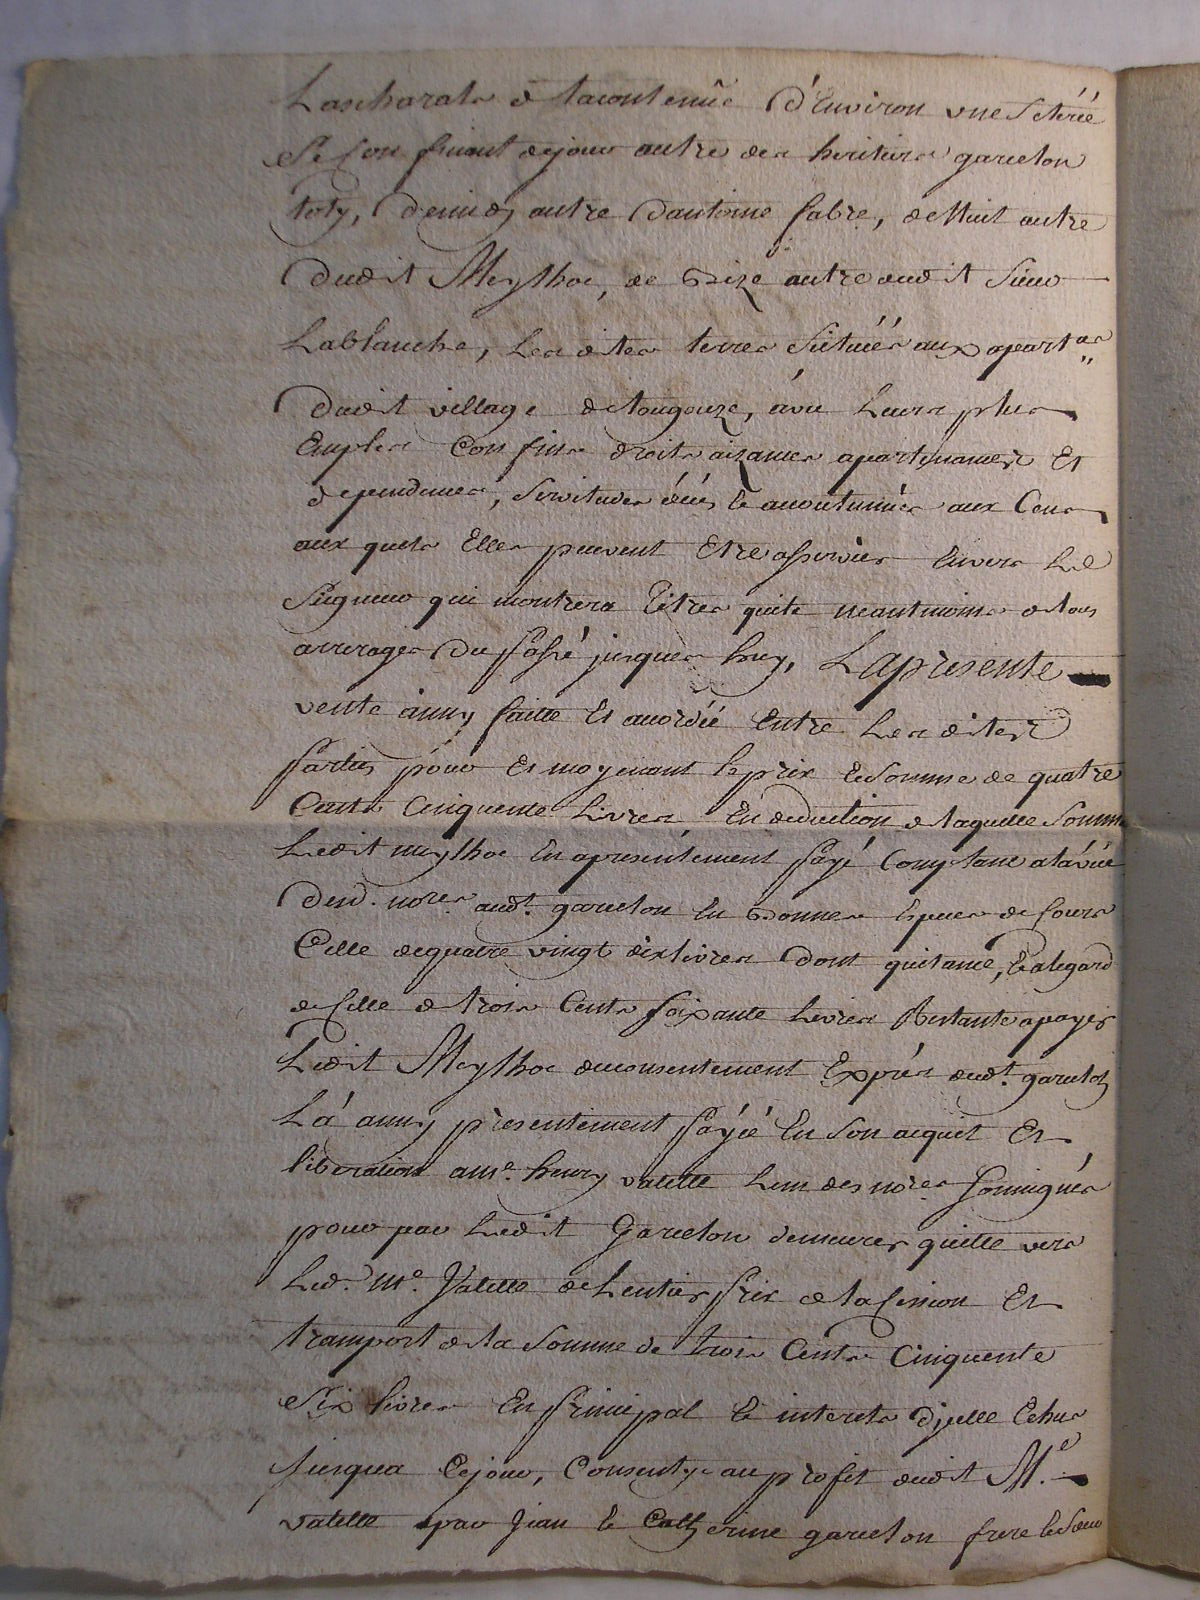 Lascharals de la contenüe d'Environ une Seterée
Se Confinant de jour autre des heritiers garcelon
toty, de midy autre d'antoine fabre, de Nuit autre
dudit Meylhoc, de Bize autre dudit Sieur
Lablanche, Les dites terres Scituées aux apart.es
dudit village de tougouze, avec Leurs plus
amples Confins droits aizances apartenances Et
dependences, Servitudes dües & acoutumées aux Cens
aux quels Elles peuvent Etre asservies Envers Le
Seigneur qui montrera titres quite neantmoins de tous
arrerages du passé jusques huy, La presente
vente ainsy faitte Et accordée Entre Les dites
parties pour Et moyenant le prix & Somme de quatre
Cents Cinquente Livres, En deduction de laquelle Somme
Ledit meylhoc En a presentement payé Comptant a la vüe
desd. no.res aud.t garcelon En Bonnes Especes de Cours
Celle de quatre vingt dix livres dont quitance, & a legard
de Celle de trois Cents soixante Livres Restante a payer
Ledit Meylhoc du consentement Exprés dud.t garcelon
L'a ainsy presentement payée En Son acquit Et
liberation a m.e henry valette L'un des no.res soussignés
pour par Ledit Garcelon demeurer quitte vers
Led. M.e Valette de L'entier prix de la Cession Et
transport de la Somme de trois Cents Cinquente
Six livres En principal & interets d'jcelle Echus
jusqua Ce jour, Consenty au profit dudit M.e
valette par Jean & Catherine garcelon frere & Sœur